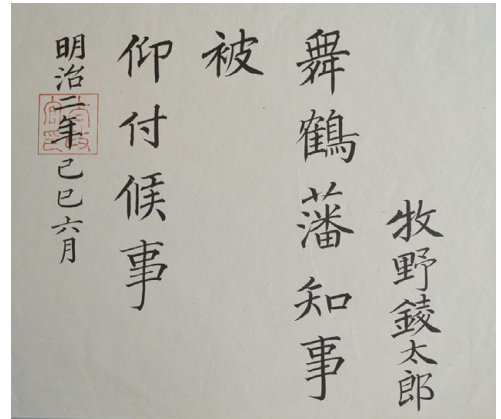 牧野錂太郎
舞鶴藩知事
被
仰付候事
明治二年己巳六月